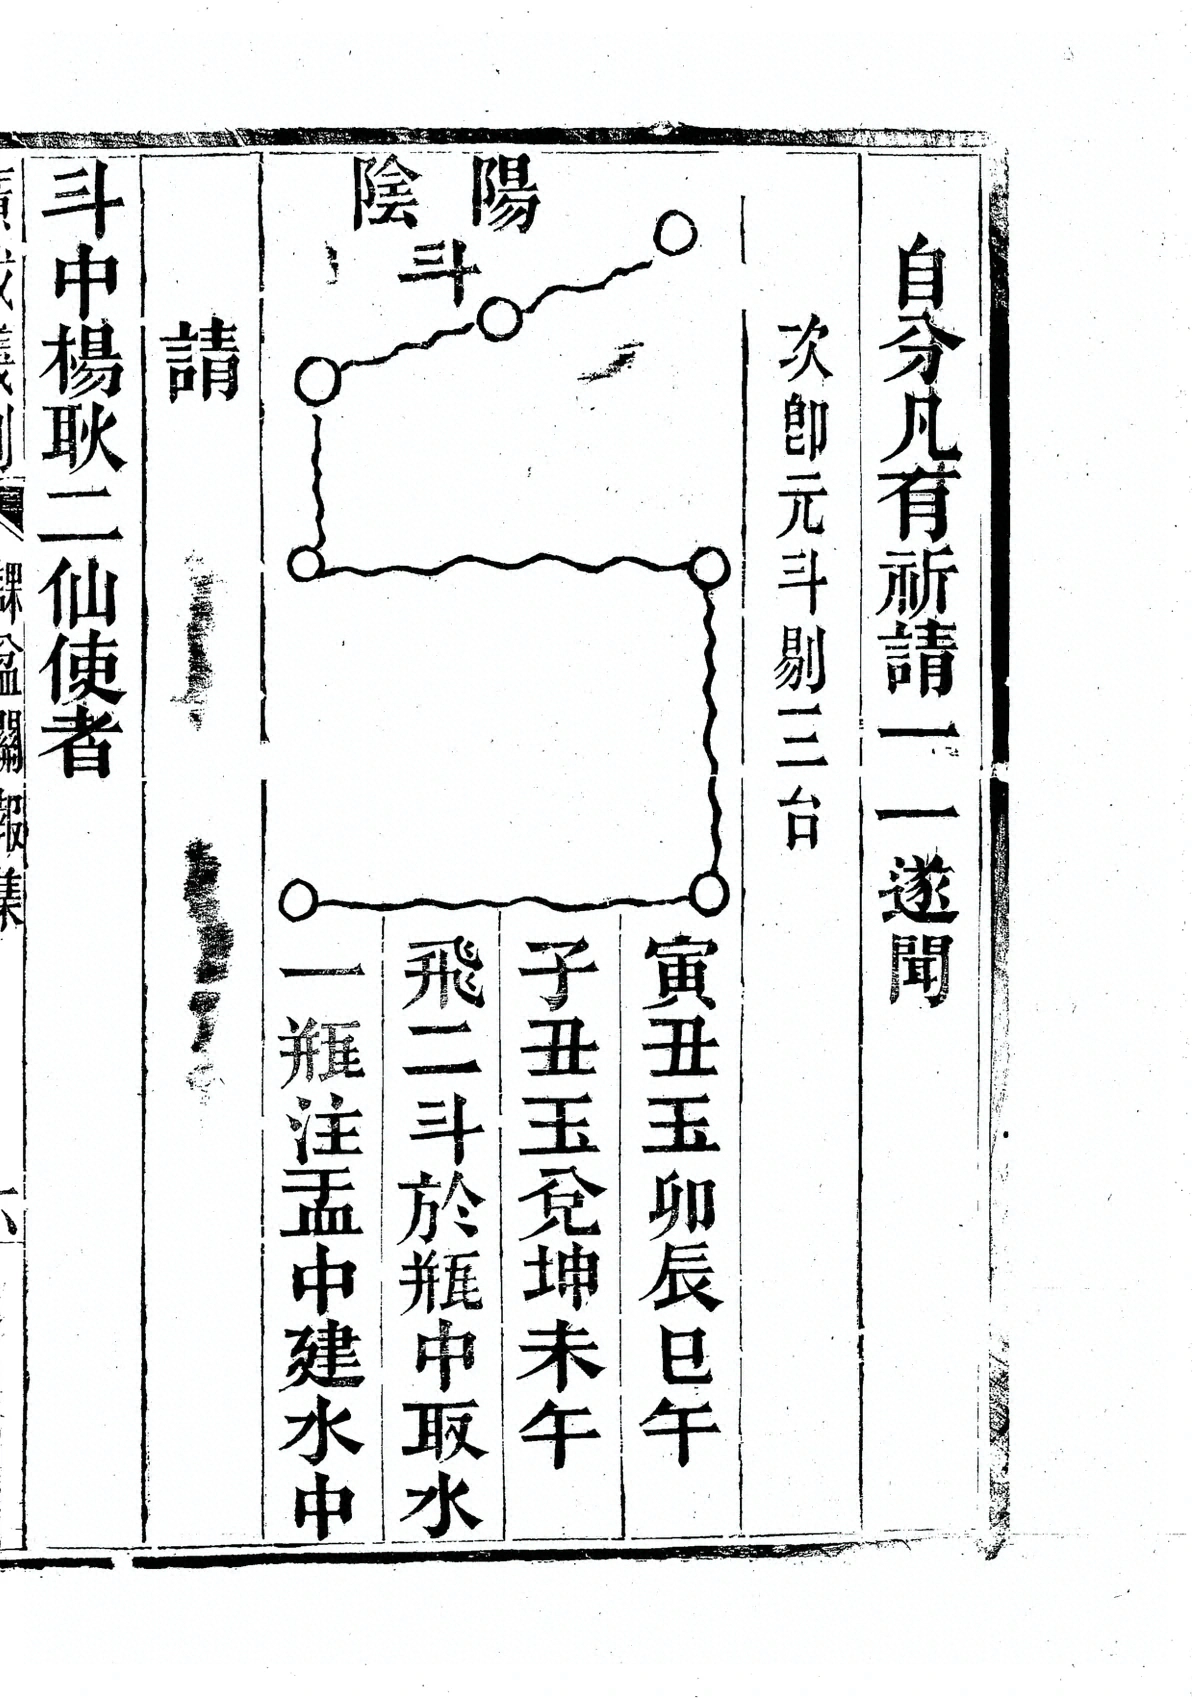 自分凡有祈請一一遂聞
次卽元斗剔三台
陽
陰
斗
寅丑玉卯辰巳午
子丑玉兌坤未午
飛二斗於瓶中取水
一瓶注盂中建水中
請
斗中楊耿二仙使者
廣成儀制
集
六